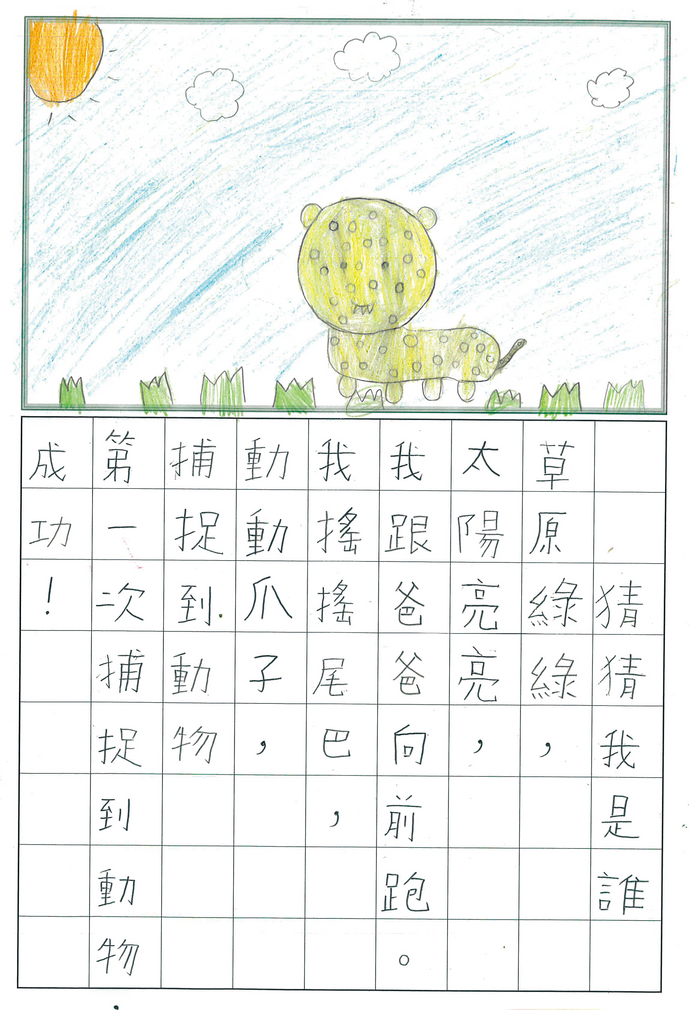 猜猜我是誰
草原綠綠，
太陽亮亮，
我跟爸爸向前跑。
我搖搖尾巴，
動動爪子，
捕捉到動物
第一次捕捉到動物
成功！